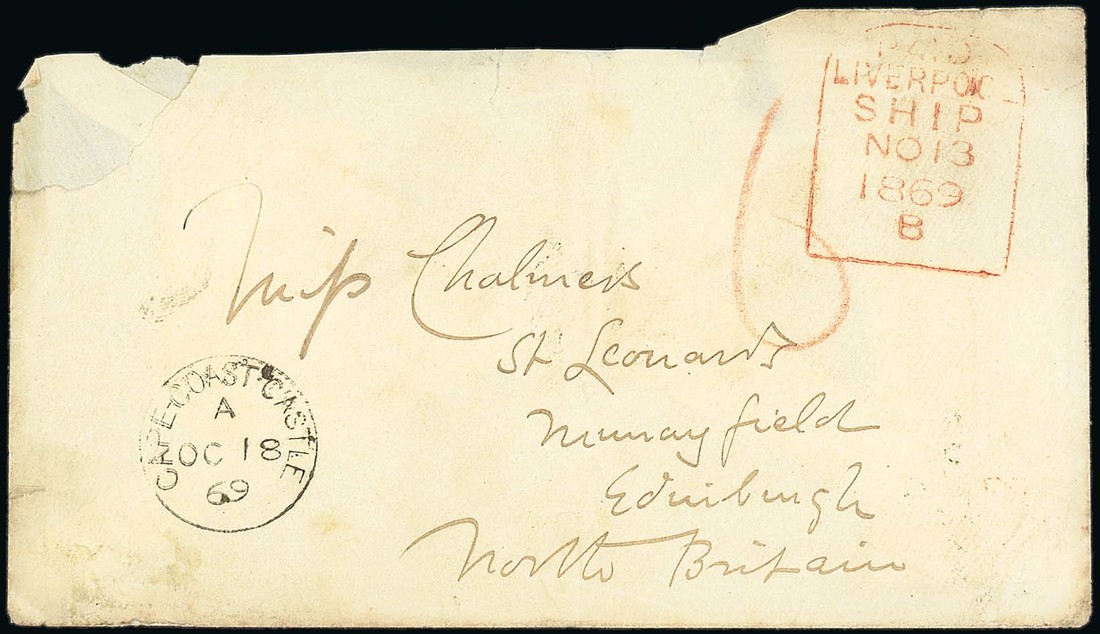 PAID
LIVERPOO
SHIP
NO 13
1869
B
6
Miss Chalmers
St Leonards
Murrayfield
Edinburgh
North Britain
CAPE-COAST-CASTLE
A
OC 18
69